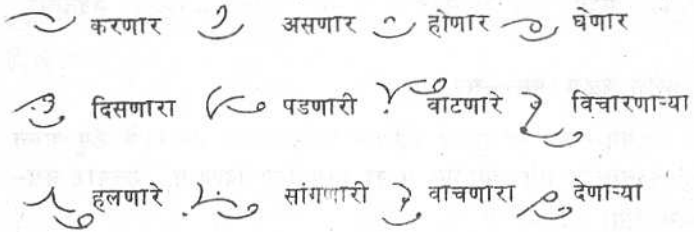 करणार असणार होणार घेणार
दिसणारा पडणारी वाटणारे विचारणाऱ्या
हलणारे सांगणारी वाचणारा देणाऱ्या